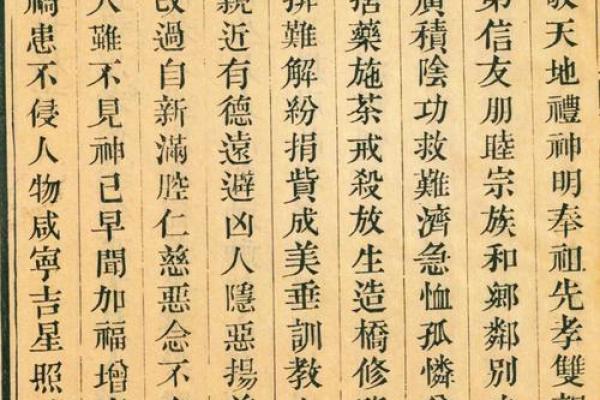 敬天地禮神明奉祖先孝雙親
弟信友朋睦宗族和鄉鄰別
廣積陰功救難濟急恤孤憐
捨藥施茶戒殺放生造橋修
排難解紛捐貲成美垂訓教
親近有德遠避凶人隱惡揚善
改過自新滿腔仁慈惡念不
人雖不見神已早聞加福增
禍患不侵人物咸寧吉星照